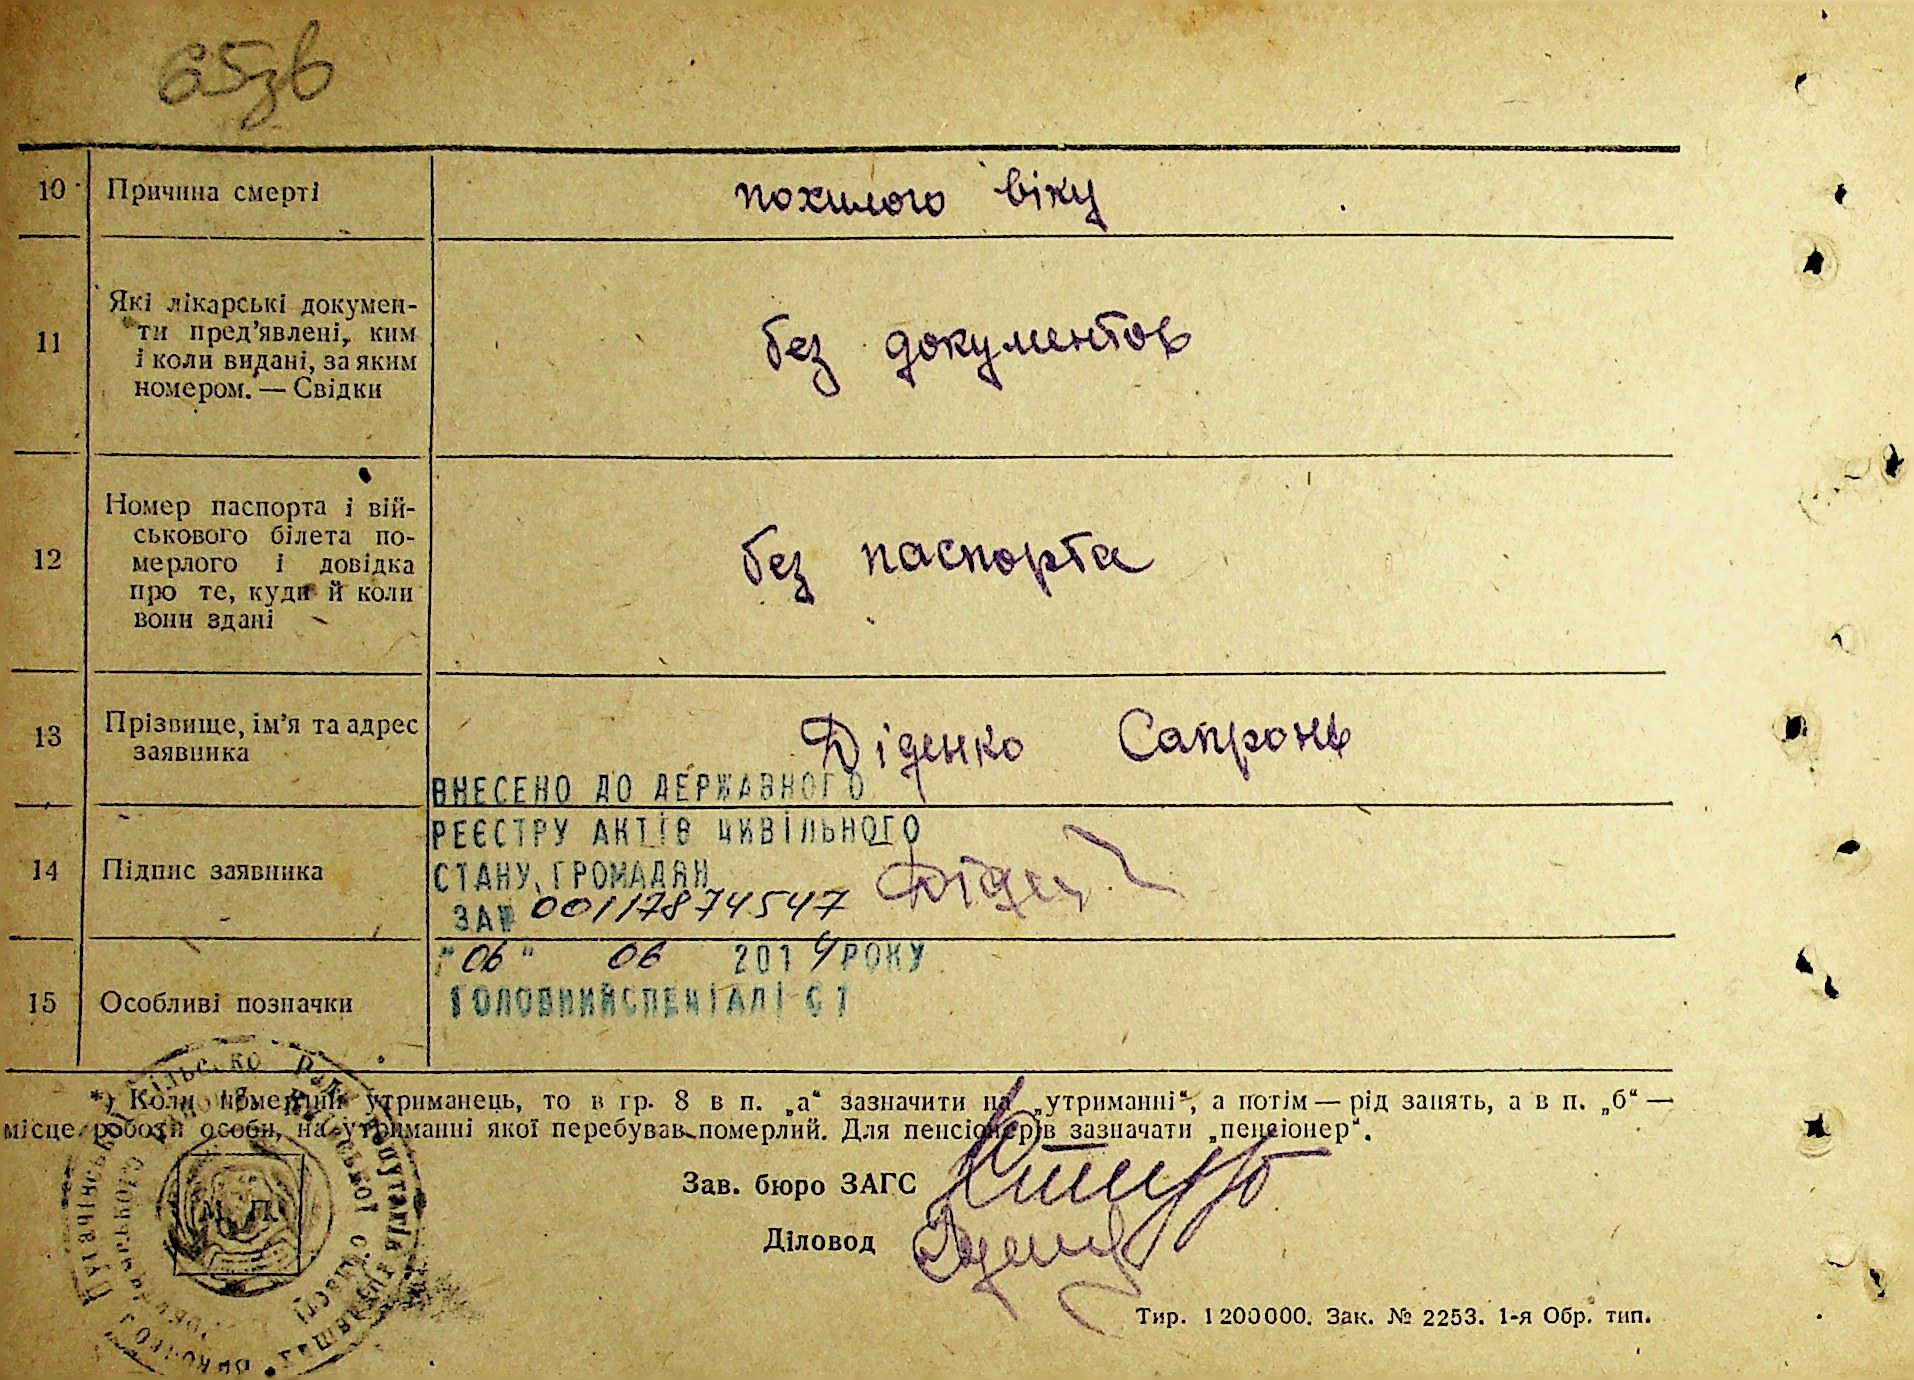 65зв
10 Причина смерті
похилого віку
11 Які лікарські докумен-
ти пред’явлені, ким
і коли видані, за яким
номером. — Свідки
без документов
12 Номер паспорта і вій-
ськового білета по-
мерлого і довідка
про те, куди й коли
вони здані
без паспорта
13 Прізвище, ім’я та адрес
заявника
Діденко Сапрон
ВНЕСЕНО ДО ДЕРЖАВНОГО
РЕЄСТРУ АКТІВ ЦИВІЛЬНОГО
СТАНУ ГРОМАДЯН
ЗА № 00117874547
14 Підпис заявника
Діден
"06" 06 2014 РОКУ
ГОЛОВНИЙ СПЕЦІАЛІСТ
15 Особливі позначки
*) Коли померший утриманець, то в гр. 8 в п. „а“ зазначити на „утриманні“, а потім — рід занять, а в п. „б“ —
місце роботи особи, на утриманні якої перебував померлий. Для пенсіонерів зазначати „пенсіонер“.
М. П.
Зав. бюро ЗАГС
Діловод
Тир. 1200000. Зак. № 2253. 1-я Обр. тип.